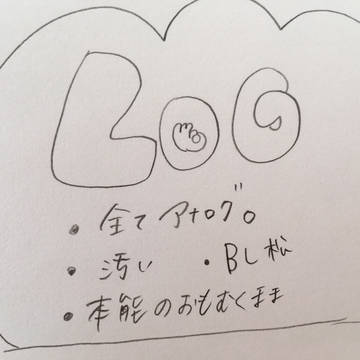 LOG
・全てアナログ。
・汚い ・BL松
・本能のおもむくまま